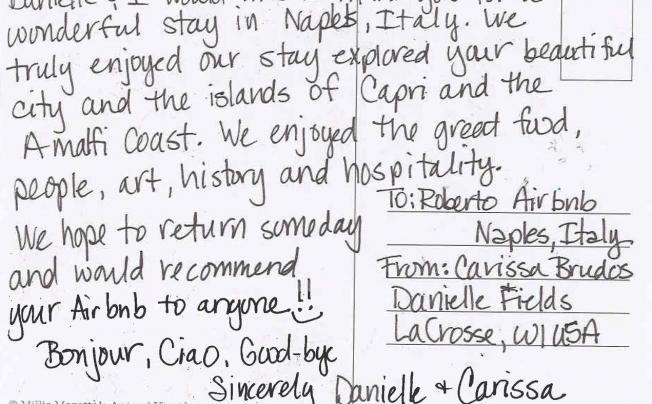 Danielle & I would
wonderful stay in Naples, Italy. We
truly enjoyed our stay explored your beautiful
city and the islands of Capri and the
Amalfi Coast. We enjoyed the great food,
people, art, history and hospitality.
We hope to return someday
and would recommend
your Airbnb to anyone!!
Bonjour, Ciao, Good-bye
Sincerely Danielle + Carissa
To: Roberto Airbnb
Naples, Italy
From: Carissa Brudos
Danielle Fields
LaCrosse, WI USA